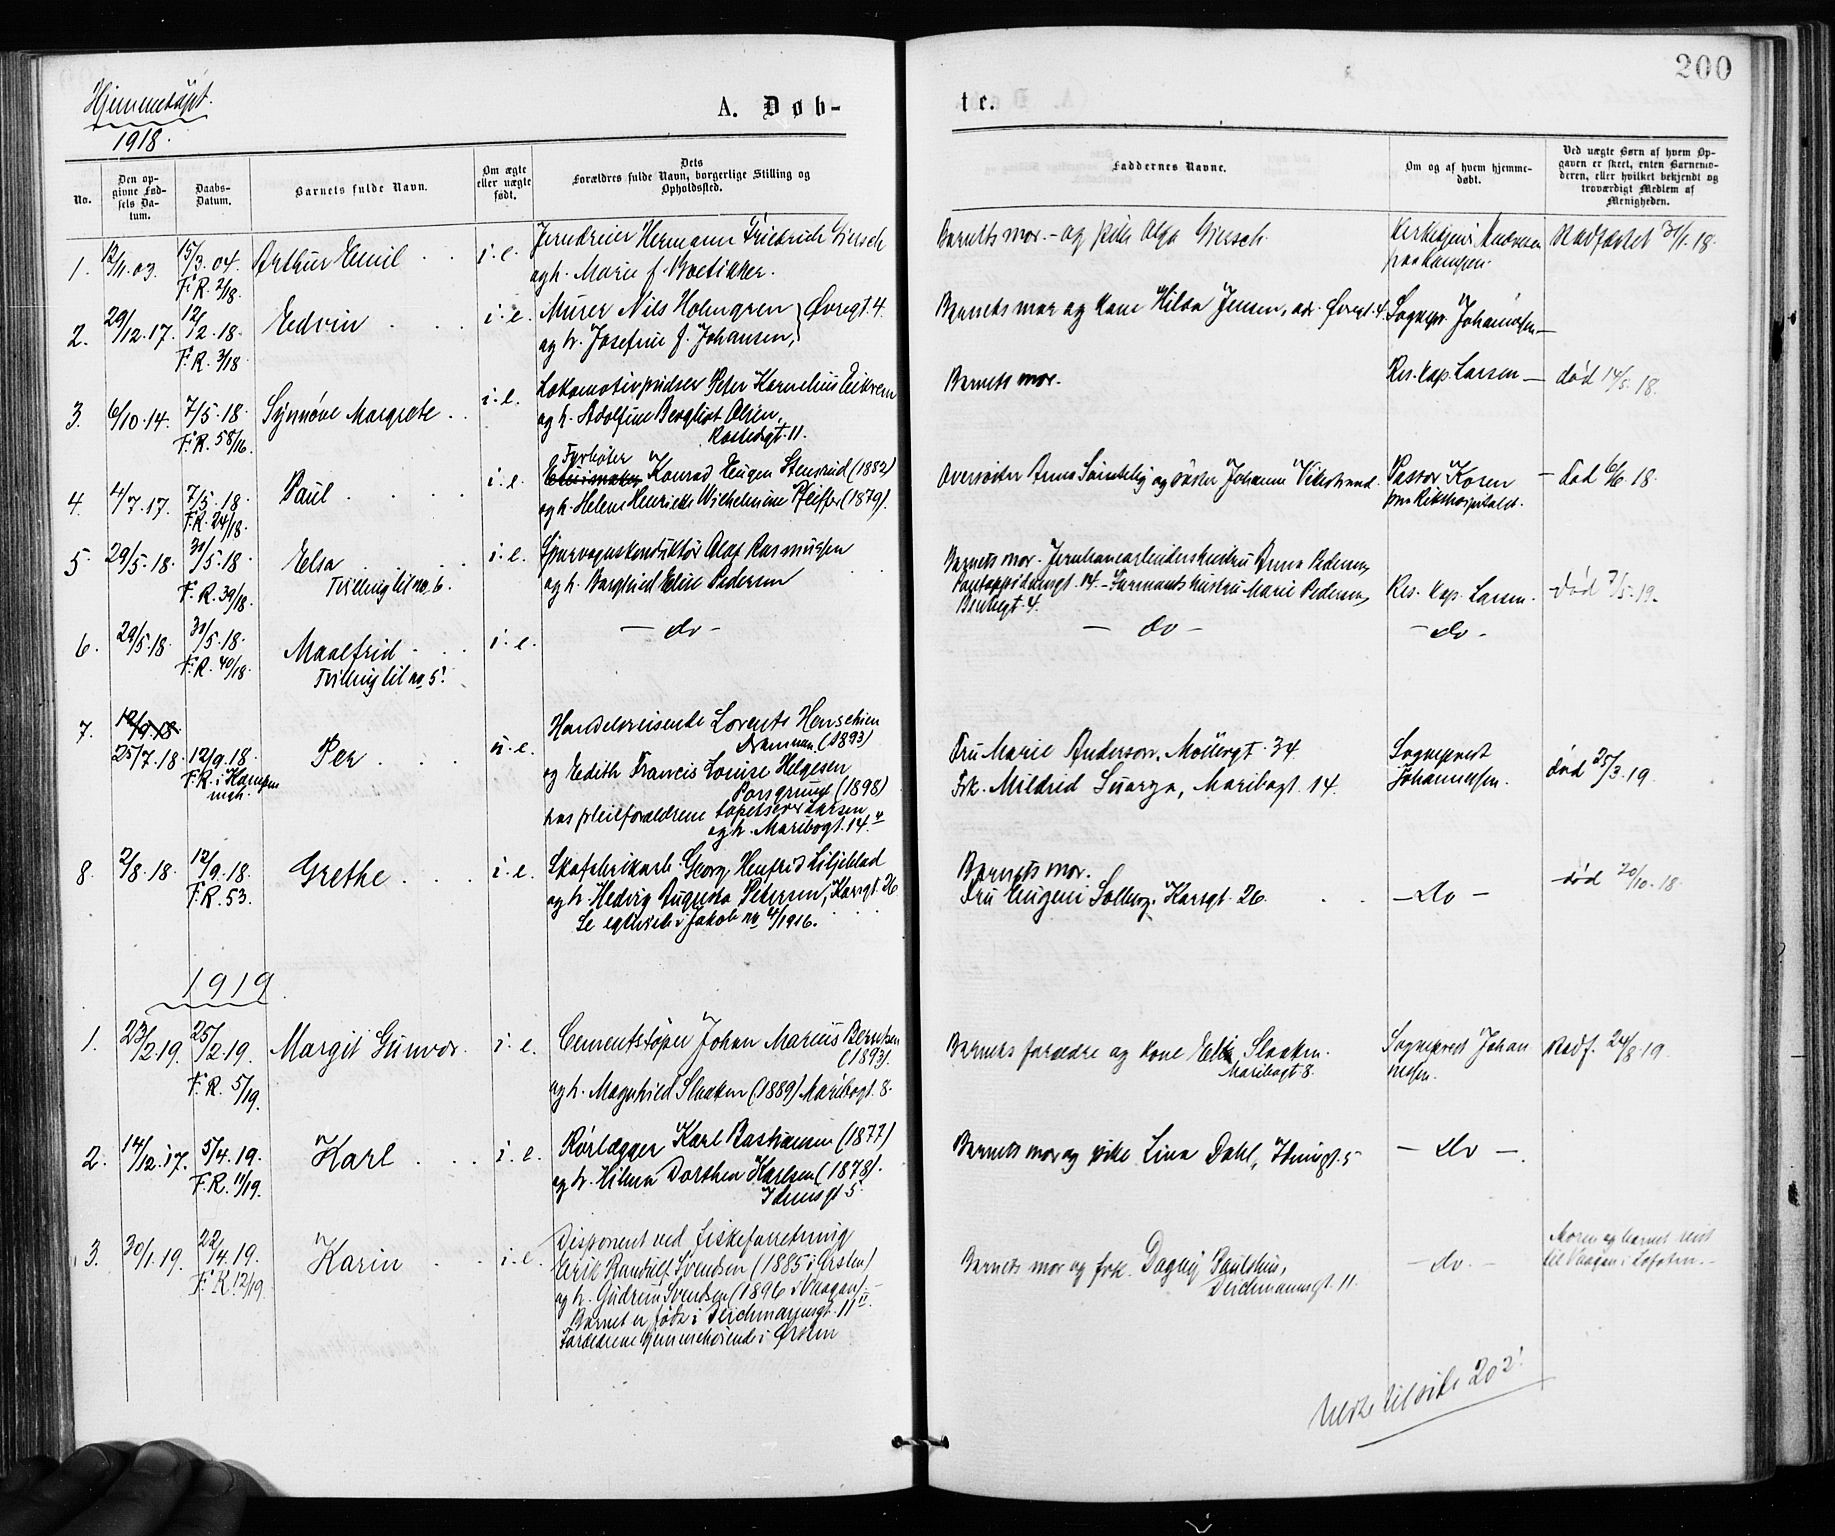 200
Hjemmedöpt.
1918.
A. Døb-
te.
No.
Den op-
givne Fød-
sels Da-
tum.
Daabs-
Datum.
Barnets fulde Navn.
Om ægte
eller uægte
født.
Dets
Forældres fulde Navn, borgerlige Stilling og
Opholdssted.
Faddernes Navne.
Om og af hvem hjemme-
døbt.
Ved uægte Børn af hvem Op-
gaven er skeet, enten Barnemo-
deren, eller hvilket bekjendt og
troværdigt Medlem af
Menigheden.
1.
12/11.03.
15/3.04.
F.R. 2/18.
Arthur Emil
i. e.
Jerndreier Hermann Friedrich Giersch
og h. Marie f. Boetikker.
Barnets mor. - og pike Olga Giersch.
paa Kampen.
Stadfæstet 31/1.18.
2.
29/12.17.
12/2.18.
F.R. 3/18.
Edvin
i. e.
Murer Nils Holmgren
og h. Josefine f. Johansen,
Øvregt. 4.
Barnets mor og kone Hilda Jensen, adr. Øvregt. 4.
Sognepr. Johannesen -
3.
6/10.14.
7/5.18.
F.R. 58/16.
Synnöve Margrete
i. e.
Lokomotivpudser Peter Kornelius Eikrem
og h. Adolfine Bergliot Olsen,
11.
Barnets mor.
Res. kap. Larsen -
död 14/5.18.
4.
4/7.17.
7/5.18.
F.R. 24/18.
Paul
i. e.
Fyrböter
Konrad Eugen Stensrud (1882)
og h. Helene Henriette Wilhelmine Pfeiffer (1879).
Oversöster Anna og söster Johanne Vikestrand.
Pastor Koren
paa Rikshospitalet.
- död 6/6.18.
5.
29/5.18.
31/5.18.
F.R. 39/18.
Elsa
Tvilling til no. 6.
i. e.
Sporvognskonduktör Olaf Rasmussen
og h. Borghild Elise Pedersen
Barnets mor. Jernbanearbeidershustru Anna Pedersen,
14. - Formands hustru Marie Pedersen,
4.
Res. kap. Larsen.
död 7/5.19.
6.
29/5.18.
31/5.18.
F.R. 40/18.
Maalfrid
Tvilling til no 5.
i. e.
- do -
- do -
- do -
7.
12/9.18
25/7.18.
12/9.18.
F.R. i Kampen
mgh.
Per
u. e.
Handelsreisende Lorents Henschien
Drammen (1893)
og Edith Francis Louise Helgesen
Porsgrund (1898)
hos pleieforældrene tapetserer Larsen
og h. Maribogt. 14.
Fru Marie Anderson, Möllergt. 34.
Frk. Mildred Maribogt. 14.
Sogneprest
Johannessen.
död 25/3.19.
8.
2/8.18.
12/9.18.
F.R. 53.
Grethe
i. e.
Skofabrikarb. Georg Henfrid Liljeblad
og h. Hedvig Augusta Petersen, Korsgt. 26
Se egteviede i Jakob no 4/1916.
Barnets mor.
Fru Eugeni Solberg, Korsgt. 26.
- do -
död 20/10.18.
1919.
1.
23/2.19.
25/2.19.
F.R. 5/19.
Margit Gunvor.
i. e.
Cementstöper Johan Marius Berntsen
(1893).
og h. Magnhild Slaaken (1889) Maribogt. 8.
Barnets forældre og kone Elise Slaaken.
Maribogt 8.
Sogneprest Johan
nesen.
stadf. 24/8.19.
2.
14/12.17.
5/4.19.
F.R. 11/19.
Karl
i. e.
Rörlægger Karl Bastiansen (1877)
og h. Hilma Dorthea Karlsen (1878).
Idunsgt 5.
Barnets mor og pike Lina Dahl, Idunsgt. 5
- do -.
3.
30/1.19.
22/4.19.
F.R. 12/19.
Karin
i. e.
Disponent ved fiskeforretning
Erik Randulf Svendsen (1885 i Örsten)
og h. Gudrun Svendsen (1896 i Vaagan) -
Barnet er födt i Deichmannsgt. 11 II.
Forældrene hjemmehörende i Örsten
Barnets mor og frk. Dagny Paulshus,
Deichmannsgt. 11.
- do. -
Moren og barnet reist
til Vaagan i Lofoten. -
Verte til side 202.